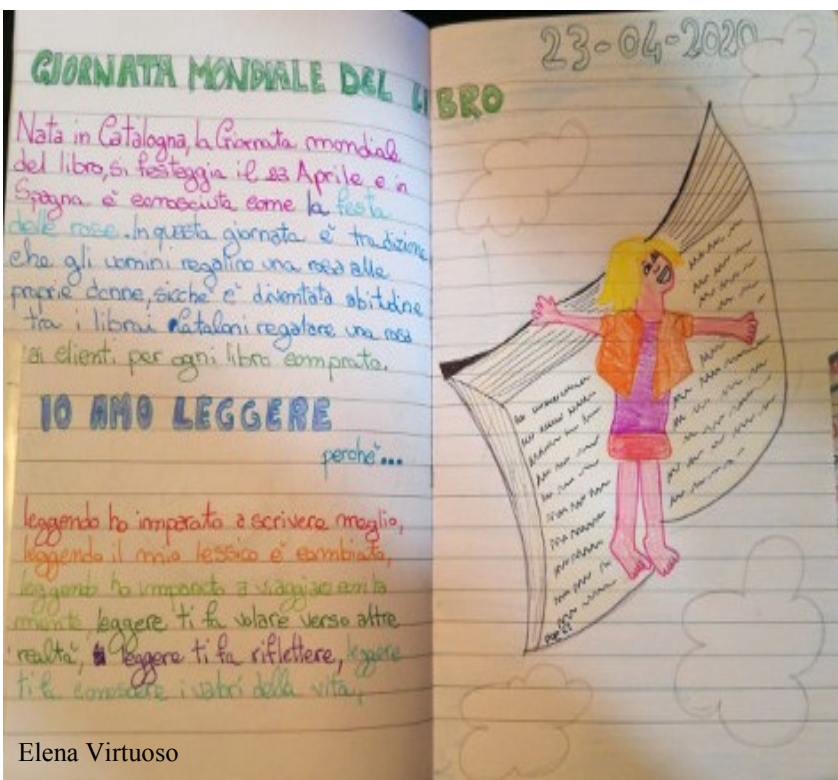 23-04-2020
GIORNATA MONDIALE DEL LIBRO
Nata in Catalogna, la Giornata mondiale
del libro, si festeggia il 23 Aprile e in
Spagna è conosciuta come la festa
delle rose. In questa giornata è tradizione
che gli uomini regalino una rosa alle
proprie donne, sicchè è diventata abitudine
tra i librai Cataloni regalare una rosa
ai clienti per ogni libro comprato.
IO AMO LEGGERE
perchè...
leggendo ho imparato a scrivere meglio,
leggendo il mio lessico è cambiato,
leggendo ho imparato a viaggiare con la
mente, leggere ti fa volare verso altre
realtà, leggere ti fa riflettere, leggere
ti fa conoscere i valori della vita,
Elena Virtuoso